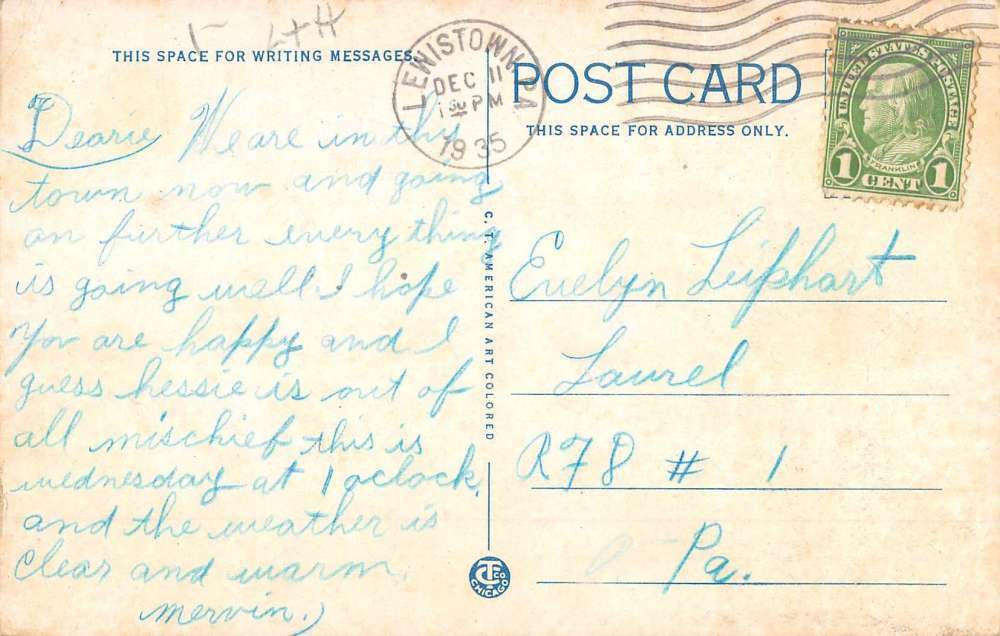 1 - L + H
THIS SPACE FOR WRITING MESSAGES.
Dearie We are in thy
town now and going
on further every thing
is going well I hope
You are happy and I
guess hessie is out of
all mischief this is
wednesday at 1 oclock,
and the weather is
Clear and warm.
Mervin.)
C. T. AMERICAN ART COLORED
CT CO CHICAGO
LEWISTOWN, PA
DEC 11
1 30 PM
1935
POST CARD
THIS SPACE FOR ADDRESS ONLY.
UNITED STATES POSTAGE
FRANKLIN
1 CENT 1
Evelyn Leiphart
Laurel
R78 # 1
Pa.